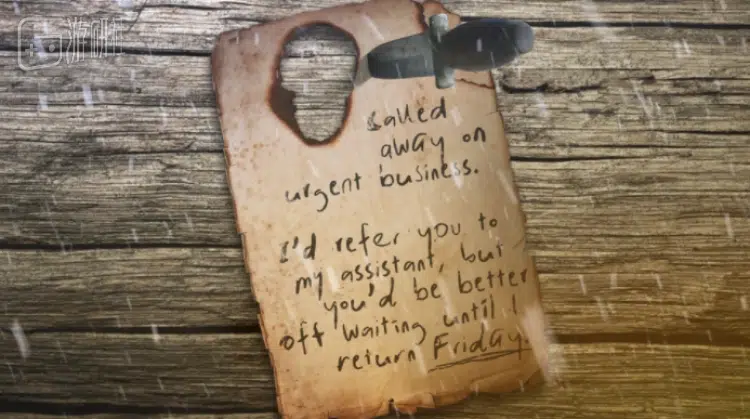 游研社
Called
away on
urgent business.
I'd refer you to
my assistant, but
you'd be better
off waiting until I
return Friday.